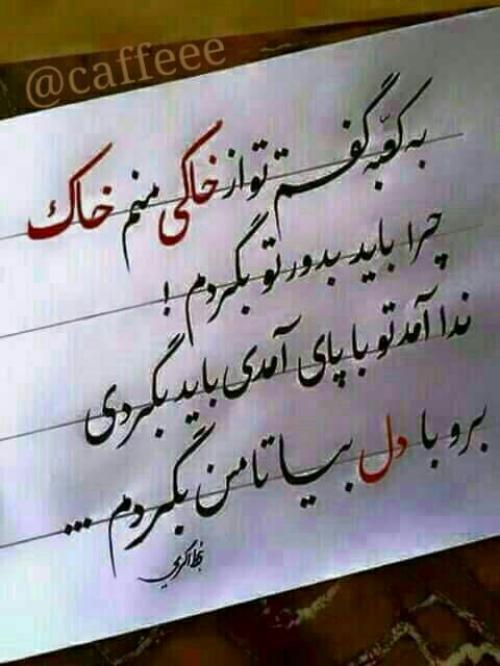 @caffeee
به کعبه گفتم تو از خاکی منم خاک
چرا باید بدور تو بگردم !
ندا آمد تو با پای آمدی باید بگردی
برو با دل بیا تا من بگردم ...